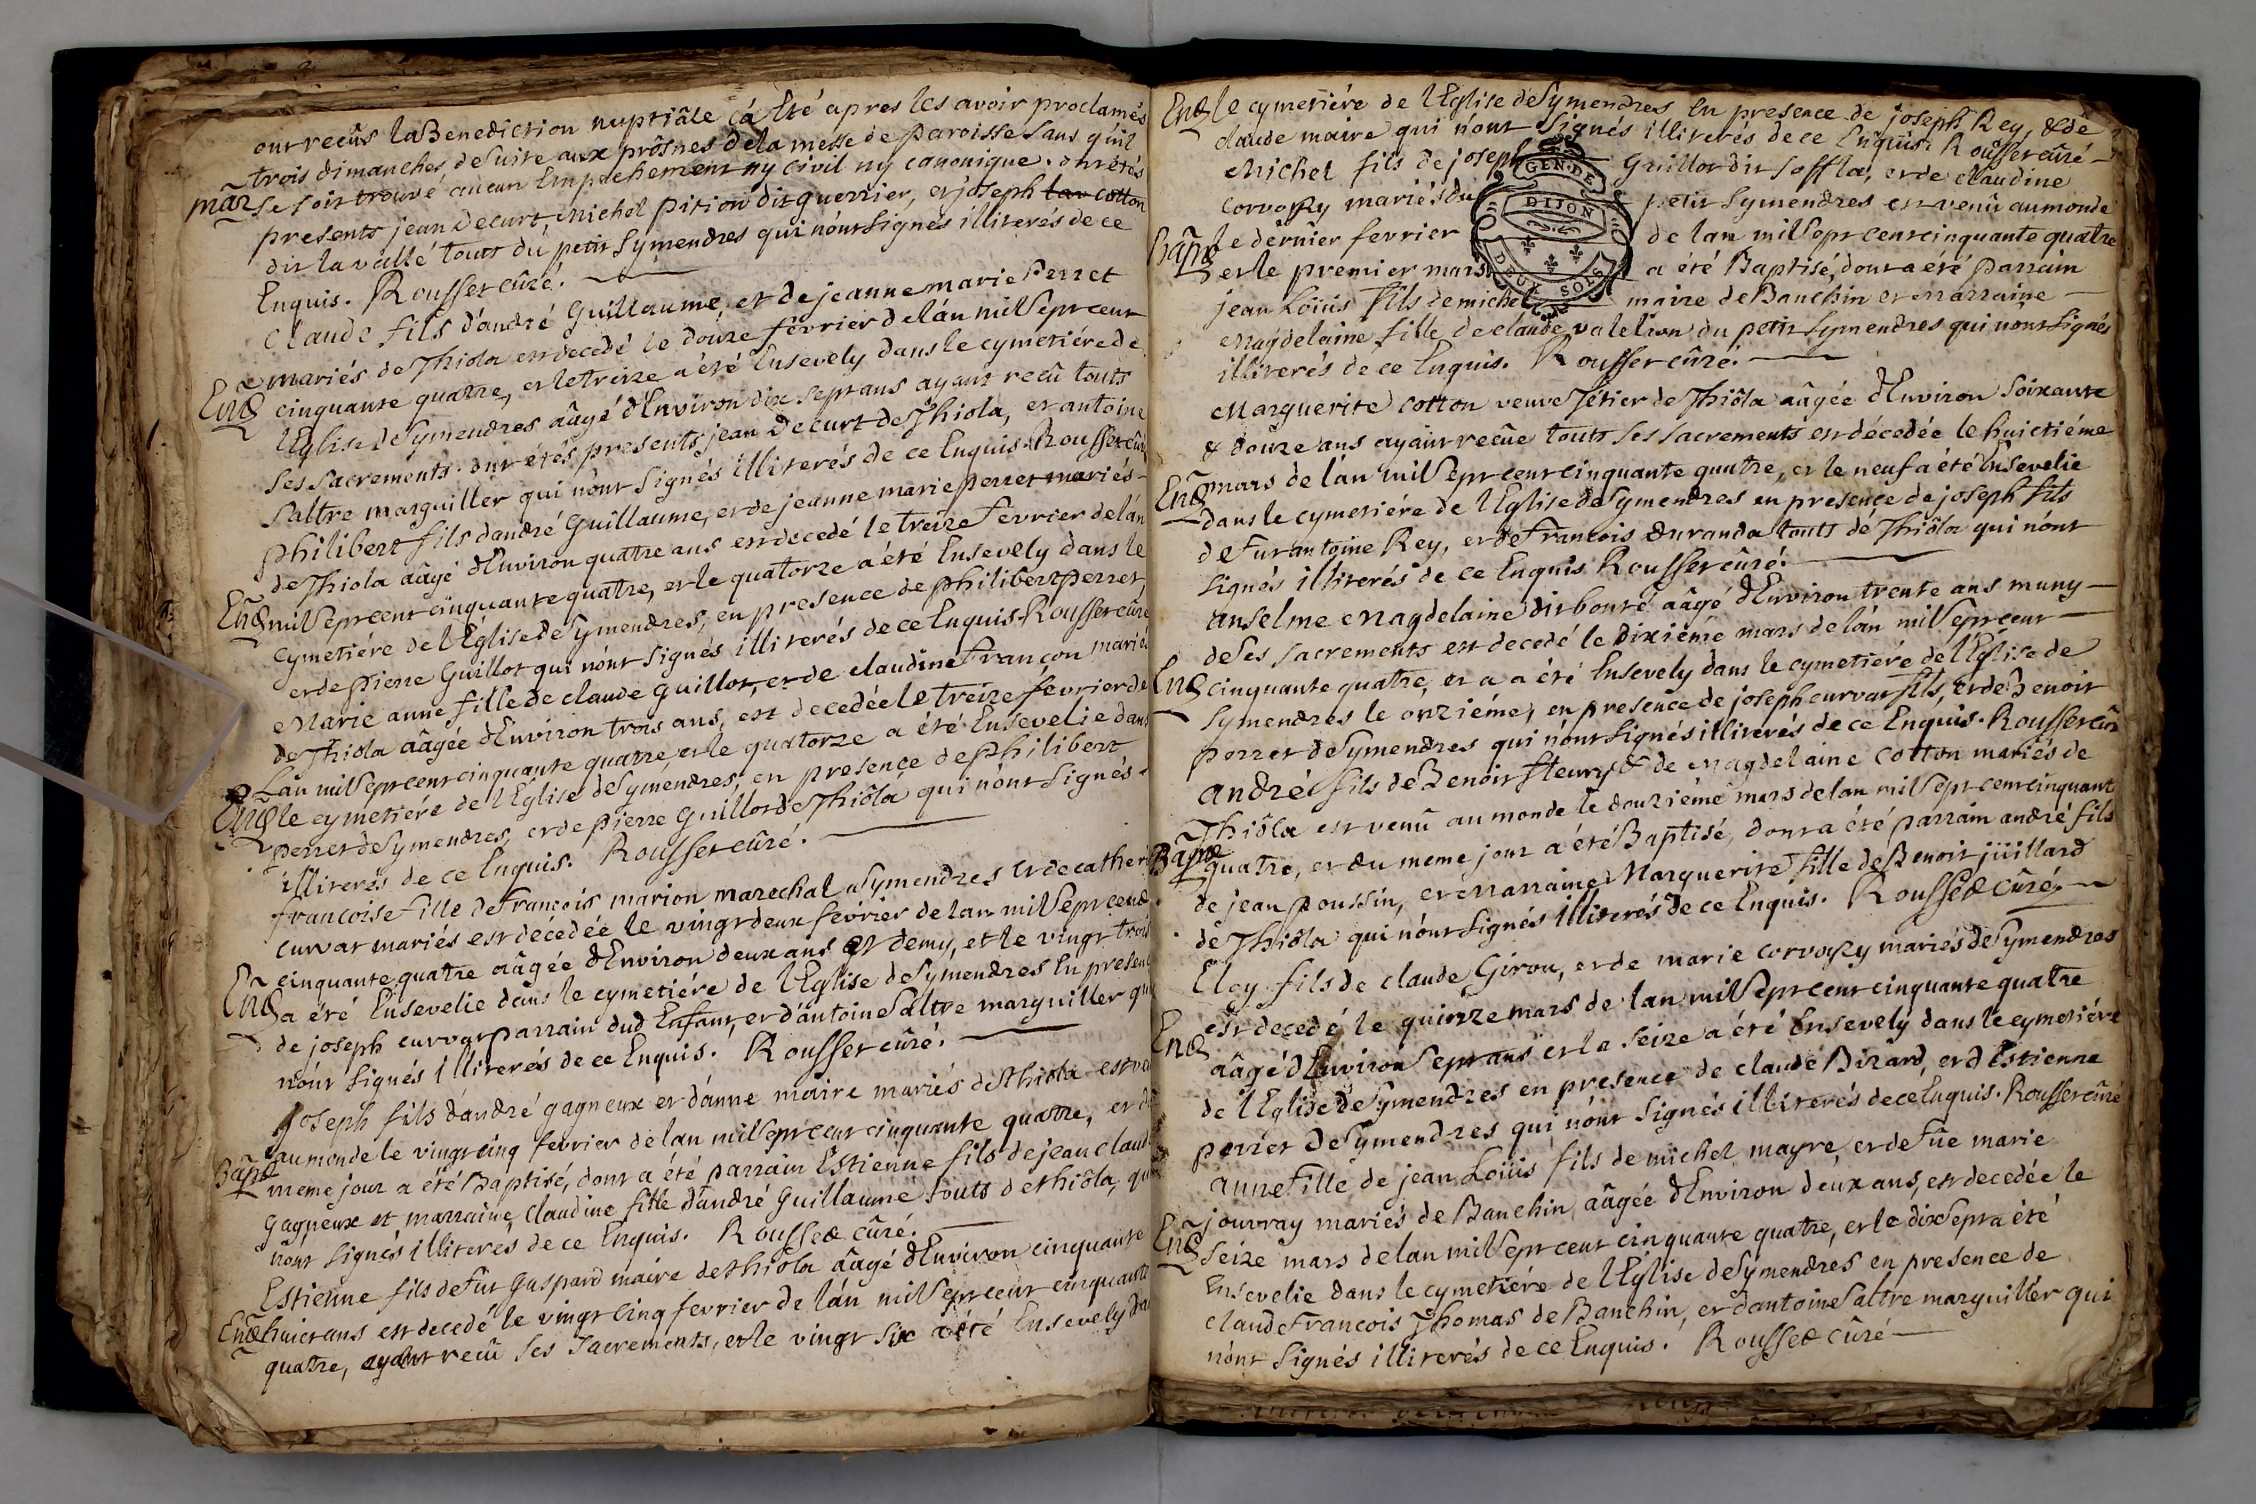 ont reçûs la Benediction nuptiâle çá été apres les avoir proclamés
trois dimanches de suite aux prônes de la messe de paroisse sans qu'il
mar se soit trouvé aucun Empechement ny civil ny canonique. ont étés
presents jean Decurt, michel pition dit guerrier, et joseph lav cotton
dit lavallé touts du petit Symendres qui nônt signés illiterés de ce
Enquis. Rousset cûré.
Claude fils d'andré Guillaume, et de jeanne marie Perret
mariés de Thiola est decedé le douze fèvrier de lán mil sept cent
Ens cinquante quatre, et le treize á été Ensevely dans le cymetiére de
l'Eglise de Symendres aâgé d'Environ dix sept ans ayant recû touts
ses sacrements. ont étés presents jean Decurt de Thiola, et antoine
saltre marguiller qui nônt signés illiterés de ce Enquis. Rousset cûré
philibert fils dandré Guillaume, et de jeanne marie perret mariés
de Thiola aâgé d'Environ quatre ans est decedé le treize fevrier de lán
Ens mil sept cent cinquante quatre, et le quatorze a été Ensevely dans le
cymetiére de l'Église de Symendres, en presence de philibert perret,
et de pierre Guillot qui nónt signés illiterés de ce Enquis. Rousset cûré
Marie anne fille de claude guillot, et de claudine Françon mariés
de Thiola aâgée d'Environ trois ans, est decedée le treize fevrier de
Lán mil sept cent cinquante quatre, et le quatorze a été Ensevelie dans
Ens le cymetiére de l'Eglise de Symendres, en presence de philibert
perret de Symendres, et de pierre Guillot de Thiôla qui nónt signés
illiterés de ce Enquis. Rousset cûré.
francoise fille de francois marion marechal a Symendres et de cather
curvat mariés est décedée le vingt deux fevrier de lan mil sept cent
cinquante quatre aâgée d'Environ deux ans et demy, et le vingt trois
Ens a été Ensevelie dans le cymetiére de l'Eglise de Symendres En presen
de joseph curvat parrain dud Enfant, et d'antoine saltre marguiller qui
nônt signés illiterés de ce Enquis. Rousset cûré.
Joseph fils d'andré gagneux et d'anne maire mariés de thiola est ve
au monde le vingt cinq fevrier de lan mil sept cent cinquante quatre, et du
Bapt meme jour a été Baptisé, dont a été parrain Estienne fils de jean claude
Gagneux et marraine, claudine fille d'andré Guillaume touts de thiôla, qui
nônt signés illiteres de ce Enquis. Rousset cûré.
Estienne fils de fût Gaspard maire de thiola aâgé d'Environ cinquante
Ens huict ans est decedé le vingt cinq fevrier de lán mil sept cent cinquante
quatre, ayant recû ses sacrements, et le vingt six a été Ensevely dans
Ens le cymetiére de l'Eglise de Symendres En presence de joseph Rey, & de
claude maire qui nónt signés illiterés de ce Enquis. Rousset cûré
Michel fils de joseph Guillot dit soffla, et de claudine
GEN. DE
corvoysy mariés du petit Symendres est venû au monde
DIJON
Bapt le dernier fevrier de lan mil sept cent cinquante quatre
et le premier mars a été Baptisé, dont a été parrain
DEUX SOLS
jean Loüis fils de michel maire de Banchin et marraine
Magdelaine fille de claude valetion du petit Symendres qui nont signés
illiterés de ce Enquis. Rousset cûré.
Marguerite cotton veuve tétier de Thiôla aâgée d'Environ soixante
& douze ans ayant recûe touts ses sacrements est décedée le huictiéme
Ens mars de lán mil sept cent cinquante quatre, et le neuf a été Ensevelie
dans le cymetiére de l'Eglise de Symendres en presence de joseph fils
de fut antoine Rey, et de francois duranda touts de Thiôla qui nónt
signés illiterés de ce Enquis Rousset cûré.
anselme Magdelaine dit bonté aâgé d'Environ trente ans muny
de ses sacrements est decedé le dixiéme mars de lán mil sept cent
Ens cinquante quatre, et a a été Ensevely dans le cymetiére de l'Église de
Symendres le onziéme, en presence de joseph curvat fils, et de Benoit
perret de Symendres qui nónt signés illiterés de ce Enquis. Rousset cûr
andré fils de Benoit fleury & de Magdelaine cotton mariés de
Thiôla est venû au monde le douziéme mars de lan mil sept cent cinquant
Bapt quatre, et du meme jour a été Baptisé, dont a été parrain andré fils
de jean poussin, et marraine Marguerite fille de Benoit jüillard
de Thiôla qui nónt signés illiterés de ce Enquis. Rousset cûré
Eloy fils de claude Girou, et de marie corvoysy mariés de Symendres
est decedé le quinze mars de lan mil sept cent cinquante quatre
Ens aâgé d'Environ sept ans et la seize a été Ensevely dans le cymetiére
de l'Eglise de Symendres en presence de claude Birard, et d'Estienne
perret de Symendres qui nónt signés illiterés de ce Enquis. Rousset cûré
anne fille de jean Loüis fils de michel mayre, et de fûe marie
jouvray mariés de Banchin, aâgée d'Environ deux ans, est decedée le
Ens seize mars de lan mil sept cent cinquante quatre, et le dix sept a été
Ensevelie dans le cymetiére de l'Eglise de Symendres en presence de
claude francois Thomas de Banchin, et dantoine saltre marguiller qui
nónt signés illiterés de ce Enquis. Rousset cûré